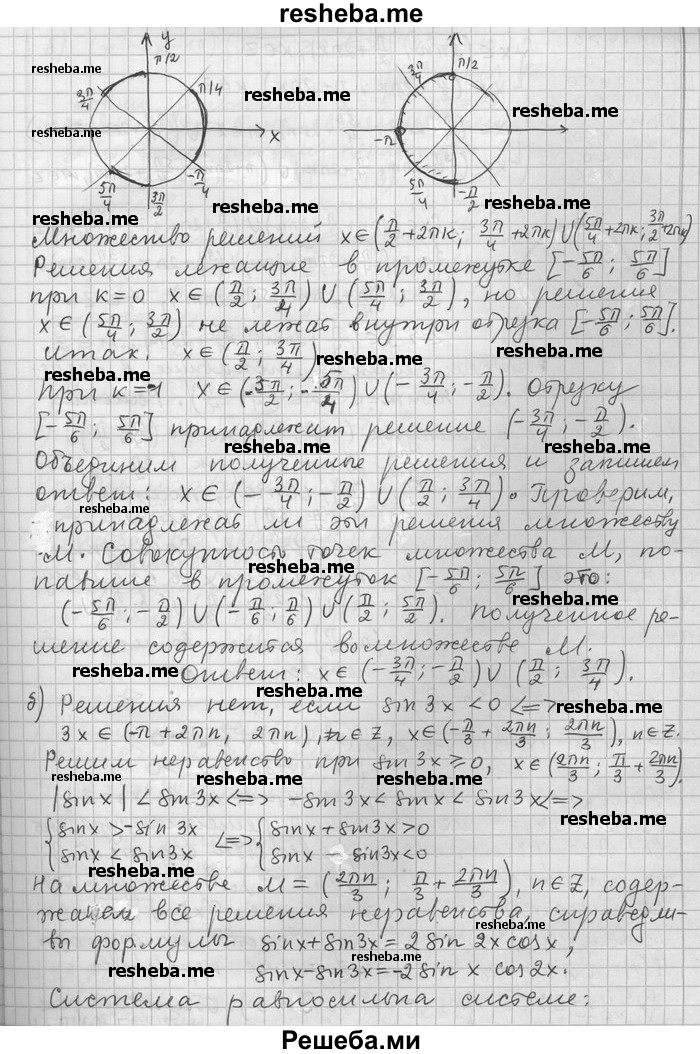 resheba.me
y
π/2
3π/4
π/4
x
5π/4
3π/2
-π/4
3π/4
π/2
-π
5π/4
-π/2
Множество решений x∈(π/2+2πк; 3π/4+2πк)∪(5π/4+2πк; 3π/2+2πк)
Решения лежащие в промежутке [-5π/6; 5π/6]
при к=0 x∈(π/2; 3π/4)∪(5π/4; 3π/2), но решения
x∈(5π/4; 3π/2) не лежат внутри отрезка [-5π/6; 5π/6].
итак. x∈(π/2; 3π/4)
При к=-1 x∈(-3π/2; -5π/4)∪(-3π/4; -π/2). Отрезку
[-5π/6; 5π/6] принадлежит решение (-3π/4; -π/2).
Объединим полученные решения и запишем
ответ: x∈(-3π/4; -π/2)∪(π/2; 3π/4). Проверим,
принадлежат ли эти решения множеству
M. Совокупность точек множества M, по-
павшие в промежуток [-5π/6; 5π/6] это:
(-5π/6; -π/2)∪(-π/6; π/6)∪(π/2; 5π/2). Полученное ре-
шение содержится во множестве M.
Ответ: x∈(-3π/4; -π/2)∪(π/2; 3π/4).
б) Решения нет, если sin3x<0 <=>
3x∈(-π+2πn, 2πn), n∈Z, x∈(-π/3+2πn/3; 2πn/3), n∈Z.
Решим неравенство при sin3x≥0, x∈(2πn/3; π/3+2πn/3).
|sinx|<sin3x<=> -sin3x<sinx<sin3x<=>
{sinx>-sin3x <=> {sinx+sin3x>0
{sinx<sin3x {sinx-sin3x<0
На множестве M=(2πn/3; π/3+2πn/3), n∈Z, содер-
жащем все решения неравенства, справедли-
вы формулы sinx+sin3x=2sin2xcosx;
sinx-sin3x=-2sinxcos2x.
Система равносильна системе:
Решеба.ми